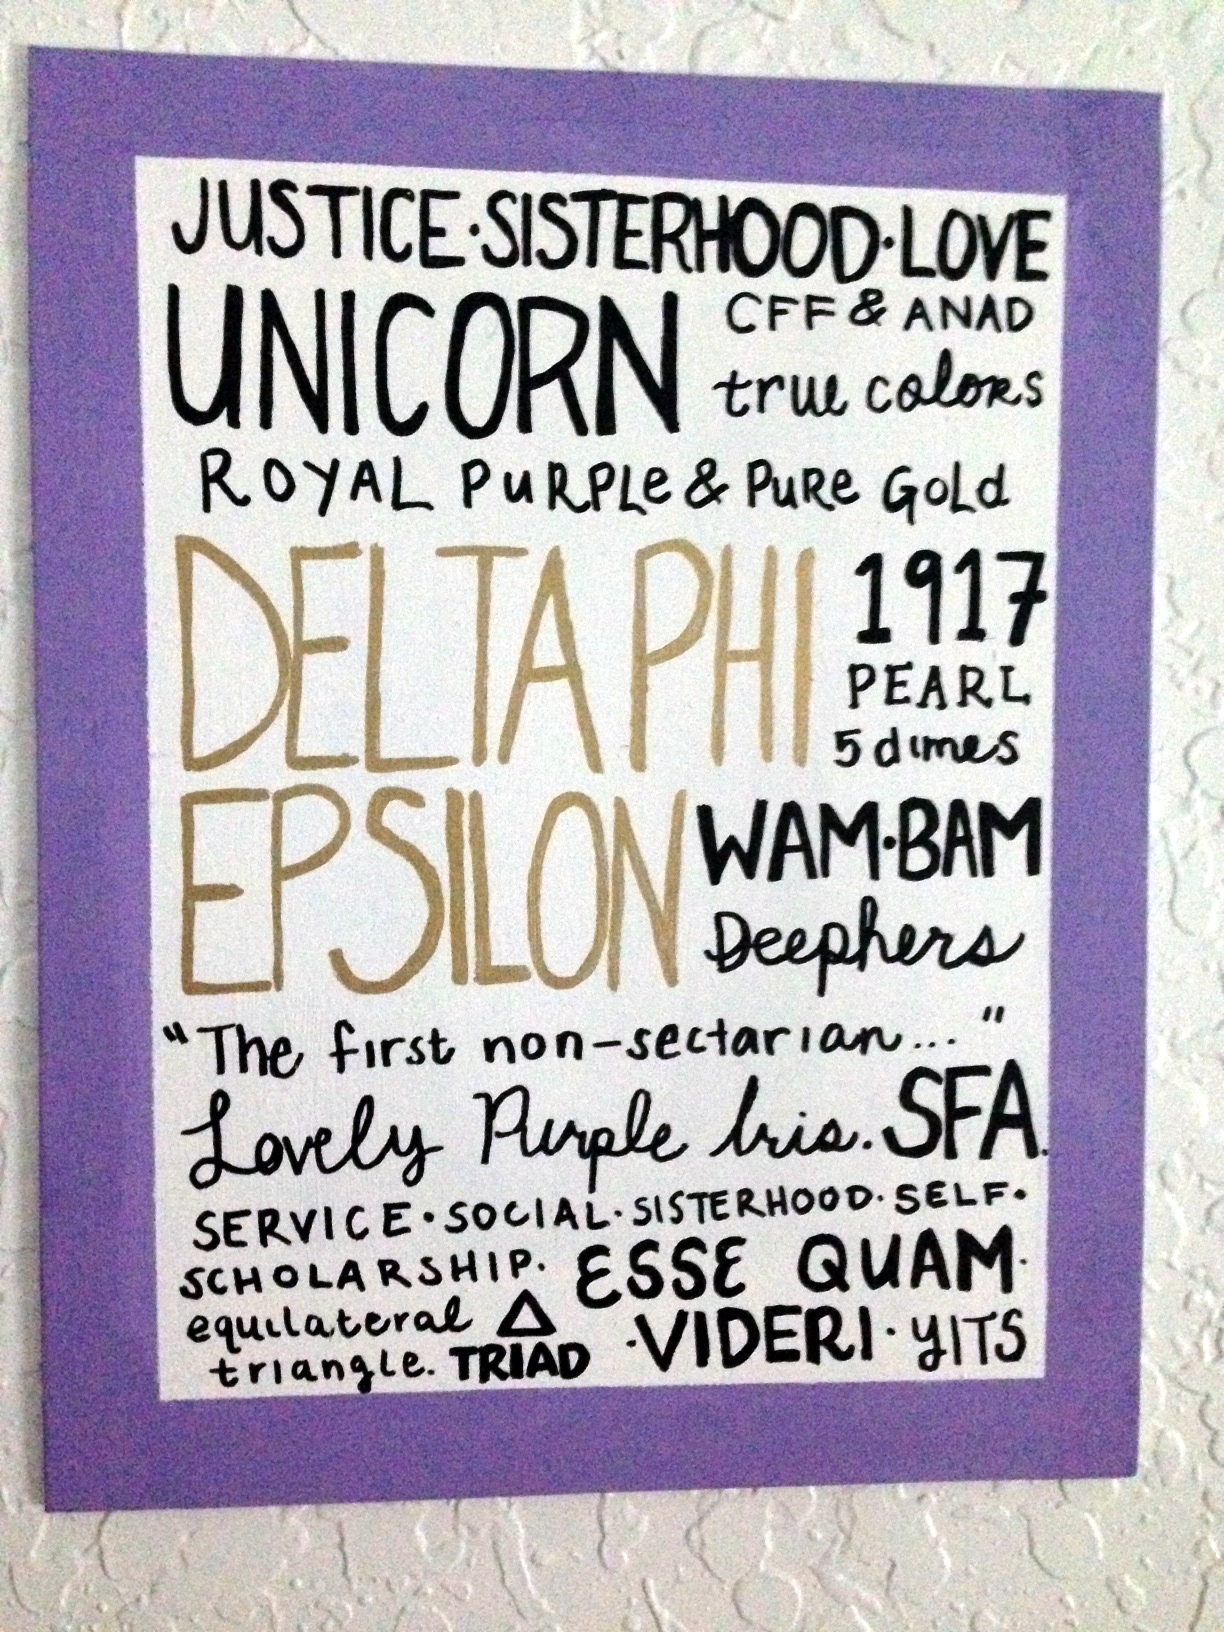 JUSTICE·SISTERHOOD·LOVE
UNICORN
CFF & ANAD
true colors
ROYAL PuRPLe & PuRe GoLd
DELTA PHI
1917
PEARL
5 dimes
EPSILON
WAM·BAM
Deephers
"The first non-sectarian..."
Lovely Purple Iris. SFA.
SERVICE·SOCIAL·SISTERHOOD·SELF·
SCHOLARSHIP·
ESSE QUAM·
equilateral △
triangle. TRIAD
·VIDERI· YITS